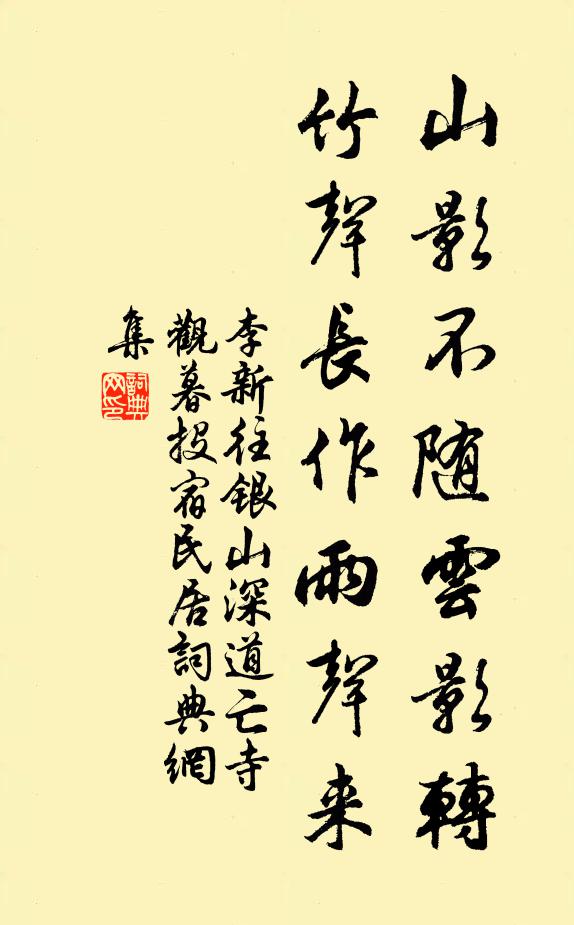 山影不随雲影轉
竹聲長作雨聲来
李新往銀山深道亡寺
觀暮投宿民居詞典網
集
詞典
网印